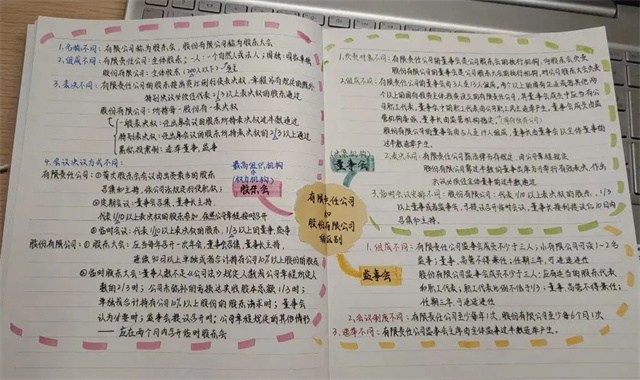 1.名称不同：有限公司称为股东会，股份有限公司称为股东大会
2.组成不同：有限责任公司：全体股东；一人：一个自然人或法人；国独：国资委单独
股份有限公司：全体股东
3.表决不同：有限责任公司的股东按出资比例行使表决权，章程另有规定的除外
特别决议经代表2/3以上的股东通过
股份有限公司：所持每一股份有一表决权
一般表决权：经出席会议的股东所持表决权过半数通过
特别表决权：经出席会议的股东所持表决权的2/3以上通过
累积投票制：选举董事、监事
4.会议决议方式不同：
有限责任公司：①首次股东会会议由出资最多的股东
召集和主持，依公司法规定行使职权；
②定期会议：董事会召集，董事长主持，
代表1/10以上表决权的股东参加，依照公司章程按时召开
③临时会议：代表1/10以上表决权的股东、1/3以上的董事、监事
股份有限公司：①股东大会：应当每年召开一次年会，董事会召集，董事长主持，
连续90日以上单独或者合计持有公司10%以上股份的股东
②临时股东大会：董事人数不足《公司法》规定人数或公司章程所定人
数的2/3时；公司未弥补的亏损达实收股本总额1/3时；
单独或合计持有公司10%以上股份的股东请求时；董事会
认为必要时；监事会提议召开时；公司章程规定的其他情形
——应在两个月内召开临时股东大会
最高组织机构
(权力机构)
股东会
有限责任公司
和
股份有限公司
的区别
董事会
监事会
1.负责对象不同：有限责任公司的董事会是公司股东会的执行机构，向股东会负责
股份有限公司的董事会是公司股东大会的执行机构，对公司股东大会负责
2.组成不同：有限责任公司的董事会由3人至13人组成。两个以上的国有企业或者其他两
个以上的国有投资主体投资设立的有限责任公司，其董事会成员中应当有公
司职工代表，董事会中的职工代表由公司职工民主选举产生。
股份有限公司的董事会由5人至19人组成，董事长由董事会以全体董事的
过半数选举产生。
3.表决不同：有限责任公司
股份有限公司应有过半数的董事出席方可举行有效表决，作出
决议必须经全体董事的过半数通过
1.组成不同：有限责任公司监事会成员不少于三人；小有限公司可设1-2名
监事；董事、高管不得兼任；任期三年，可连选连任
股份有限公司监事会成员不少于三人；应由适当的股东代表
和职工代表；职工代表比例不低于1/3；董事、高管不得兼任；
任期三年，可连选连任
2.会议制度不同：有限责任公司至少每年1次，股份有限公司至少每6个月1次
3.选举不同：有限责任公司监事会主席由全体监事过半数选举产生。